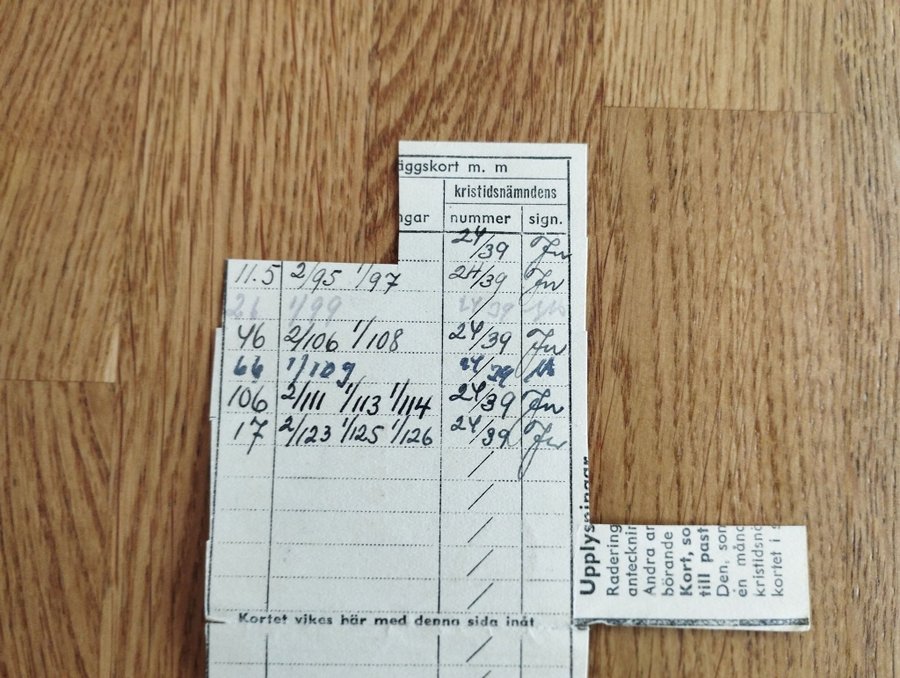 äggskort m. m
kristidsnämndens
ngar nummer sign.
24/39 Jn
11.5 2/95 1/97 24/39 Jn
21 1/99 24 39
46 2/106 1/108 24/39 Jn
66 1/109 24/39
106 2/111 1/113 1/114 24/39 Jn
17 2/123 1/125 1/126 24/39 Jn
/
/
/
/
Kortet vikes här med denna sida inåt
/
Upplysningar
Radering
antecknin
Andra ar
börande
Kort, so
till past
Den, som
en måna
kristidsnä
kortet i s